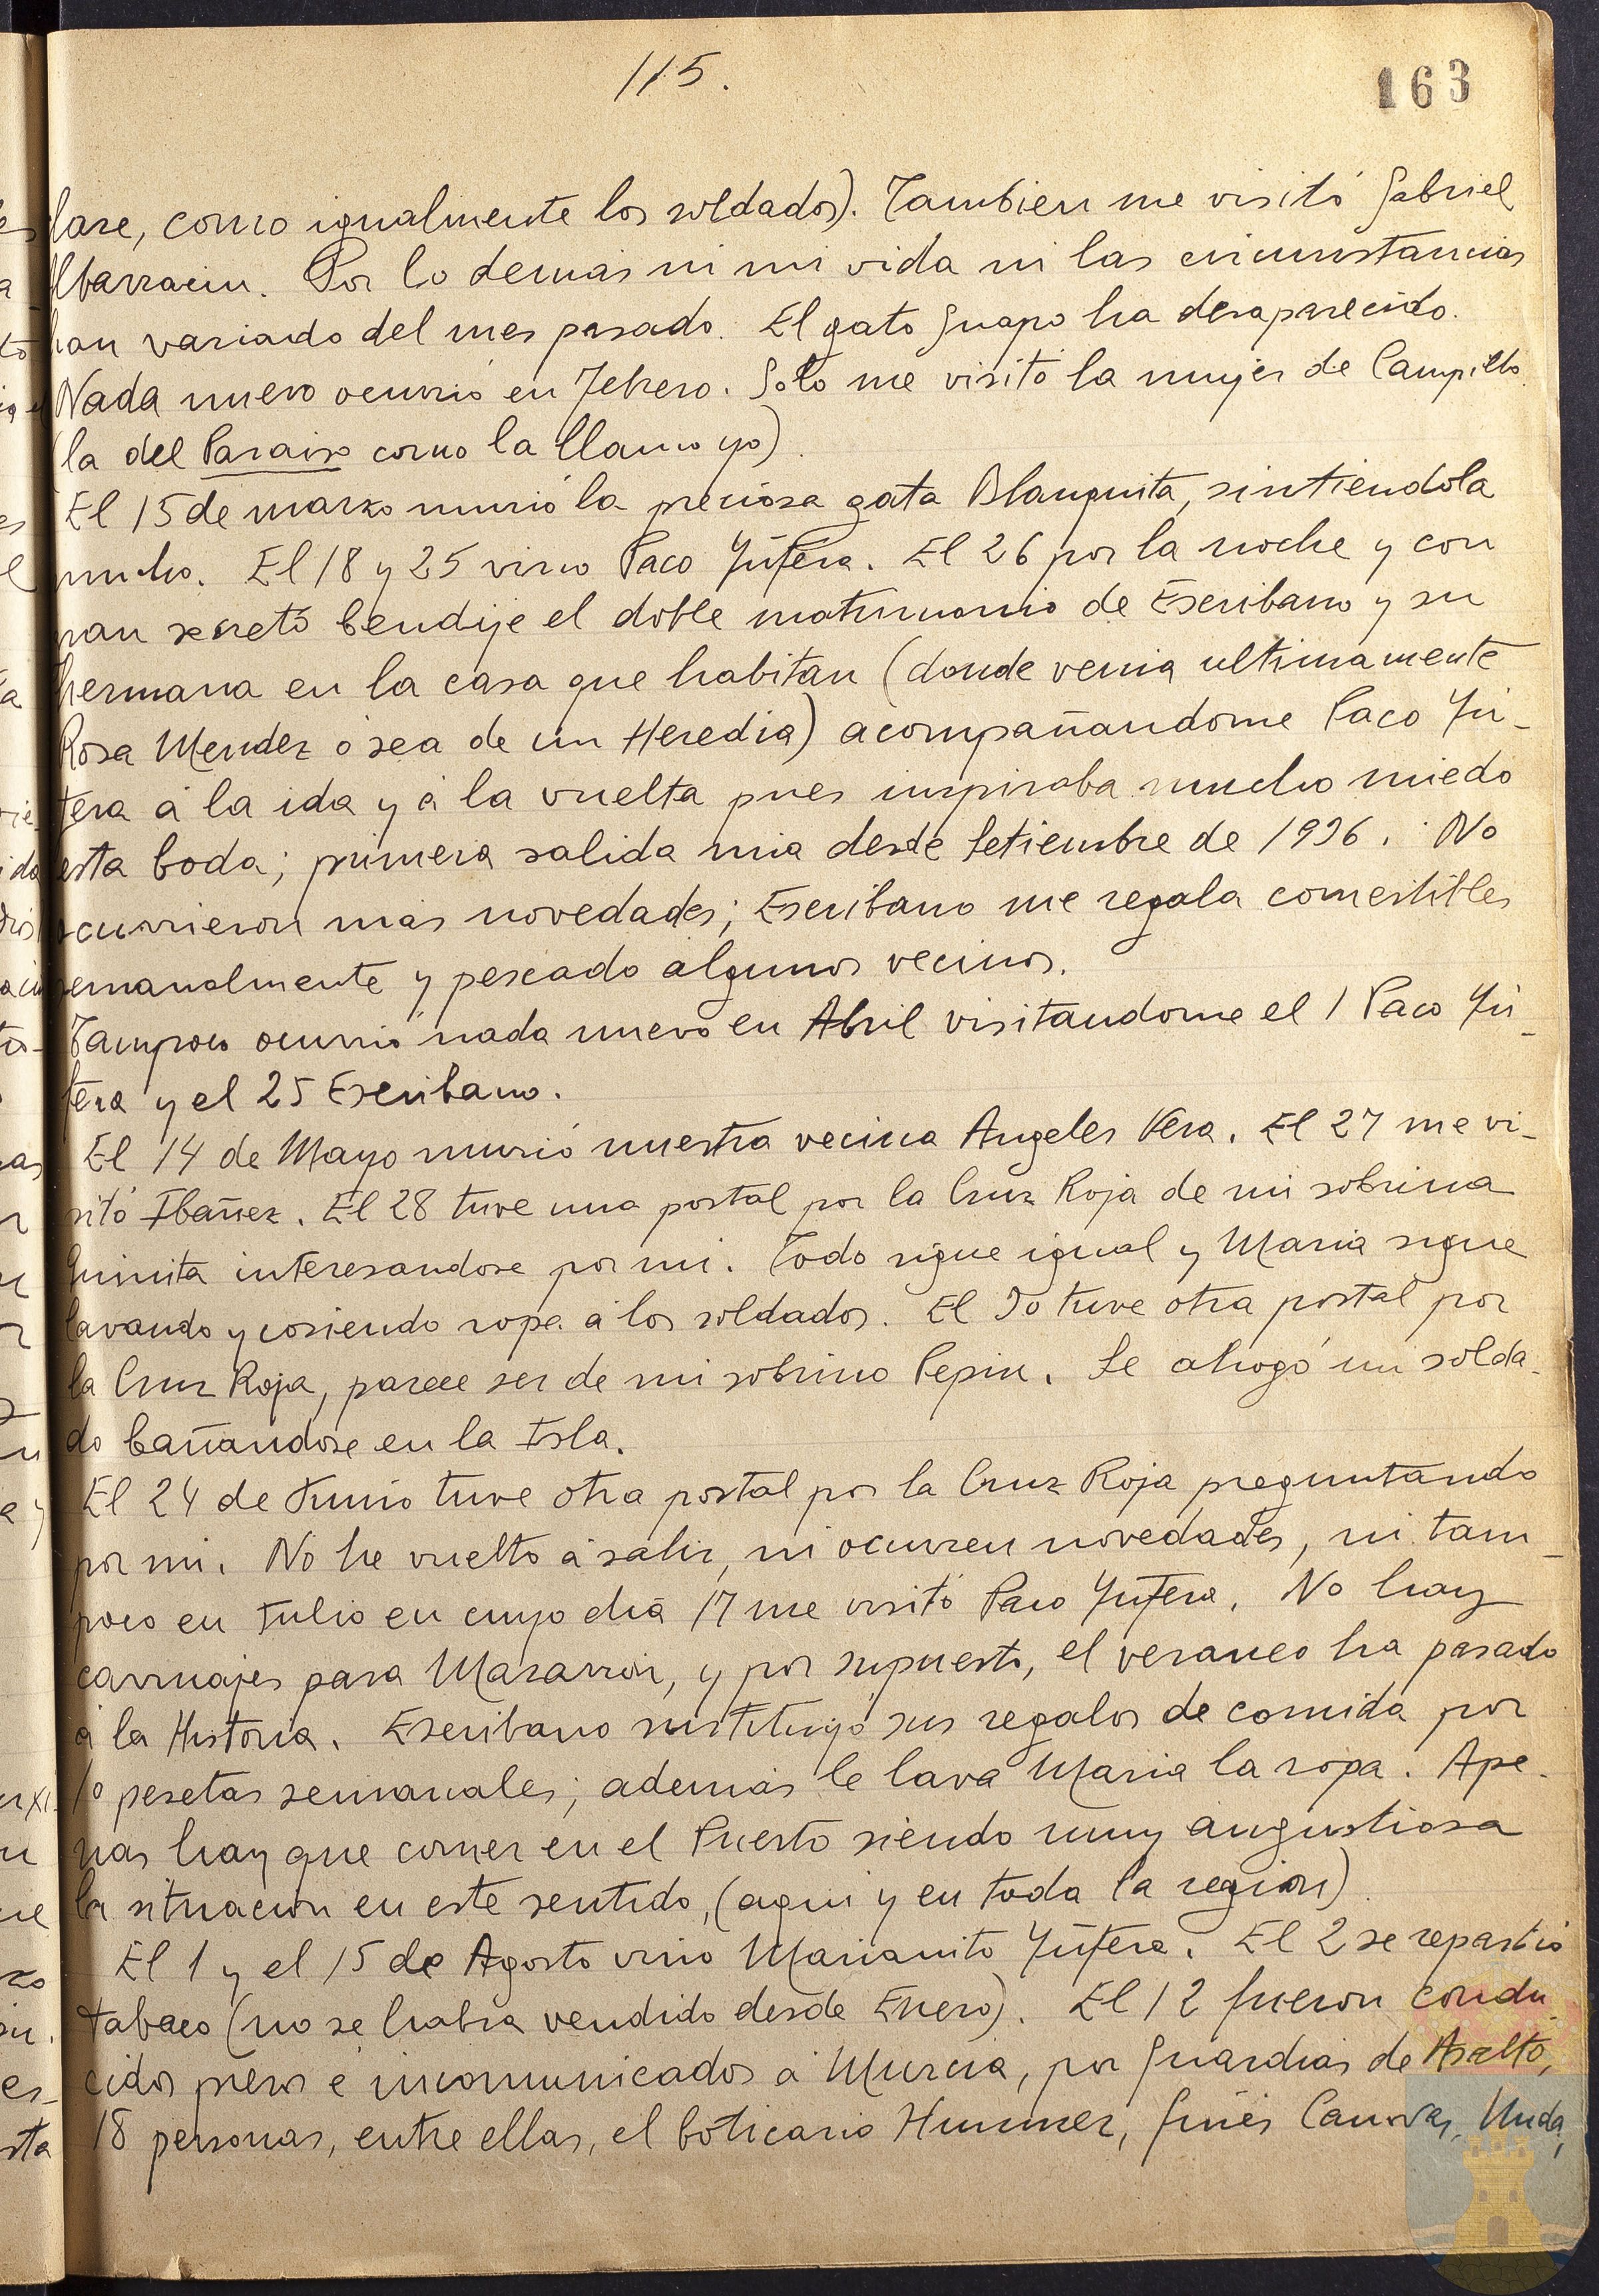 115.
163
clase, como igualmente los soldados). Tambien me visitó Gabriel
Albarracin. Por lo demas ni mi vida ni las circunstancias
han variado del mes pasado. El gato Guapo ha desaparecido.
Nada nuevo ocurrió en Febrero. Solo me visitó la mujer de Campillo
(la del Paraiso como la llamo yo).
El 15 de marzo murió la preciosa gata Blanquita, sintiendola
mucho. El 18 y 25 vino Paco Yúfera. El 26 por la noche y con
gran secreto bendije el doble matrimonio de Escribano y su
hermana en la casa que habitan (donde venia ultimamente
Rosa Mendez ó sea de un Heredia) acompañandome Paco Yú-
fera á la ida y á la vuelta pues inspiraba mucho miedo
esta boda; primera salida mia desde Setiembre de 1936. No
ocurrieron mas novedades; Escribano me regala comestibles
semanalmente y pescado algunos vecinos.
Tampoco ocurrió nada nuevo en Abril visitandome el 1 Paco Yú-
fera y el 25 Escribano.
El 14 de Mayo murió nuestra vecina Angeles Vera. El 27 me vi-
sitó Ibañez. El 28 tuve una postal por la Cruz Roja de mi sobrina
interesandose por mi. Todo sigue igual y Maria sigue
lavando y cosiendo ropa á los soldados. El 30 tuve otra postal por
la Cruz Roja, parece ser de mi sobrino Pepin. Se ahogó un solda-
do bañandose en la Isla.
El 24 de Junio tuve otra postal por la Cruz Roja preguntando
por mi. No he vuelto á salir, ni ocurren novedades, ni tam-
poco en Julio en cuyo dia 17 me visitó Paco Yúfera. No hay
carruajes para Mazarron, y por supuesto, el veraneo ha pasado
á la Historia. Escribano sustituyó sus regalos de comida por
10 pesetas semanales; además le lava Maria la ropa. Ape-
nas hay que comer en el Puerto siendo muy angustiosa
la situacion en este sentido, (aqui y en toda la region).
El 1 y el 15 de Agosto vino Marianito Yúfera. El 2 se repartió
tabaco (no se habia vendido desde Enero). El 12 fueron condu-
cidos presos é incomunicados á Murcia, por Guardias de Asalto,
18 personas, entre ellas, el boticario Ginés Canovas,